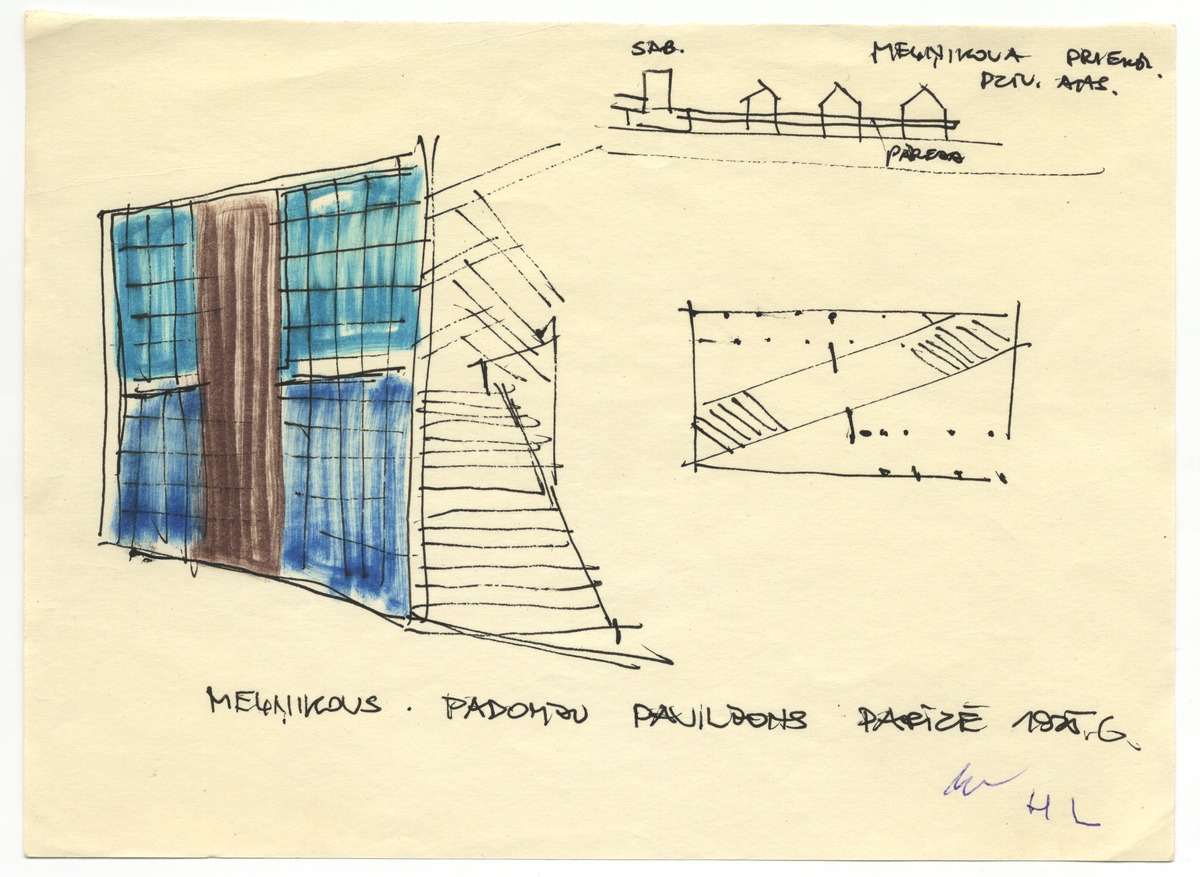 SAB.
MEĻŅIKOVA PRIEKŠ.
DZĪV. MAS.
PĀREJA
MEĻŅIKOVS. PADOMJU PAVILJONS PARĪZĒ 1925. G.
H L